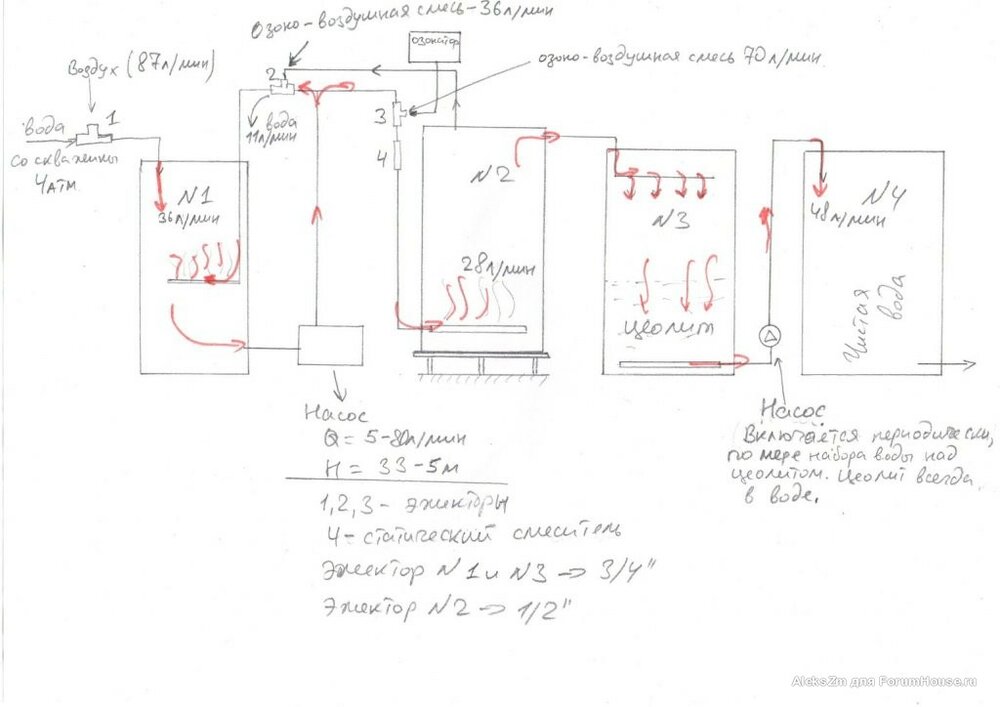 Озоно-воздушная смесь-36л/мин
озонатор
Воздух (87л/мин)
озоно-воздушная смесь 70л/мин
2
1
3
вода
11л/мин
вода
со скважины
4атм
4
N1
36л/мин
N2
N3
N4
48л/мин
28л/мин
цеолит
Чистая
вода
Насос
Q = 5-80л/мин
H = 33-5м
1,2,3- эжекторы
4- статический смеситель
Эжектор N1 и N3 -> 3/4"
Эжектор N2 -> 1/2"
Насос
Включается периодически,
по мере набора воды над
цеолитом. Цеолит всегда
в воде.
AleksZm для ForumHouse.ru